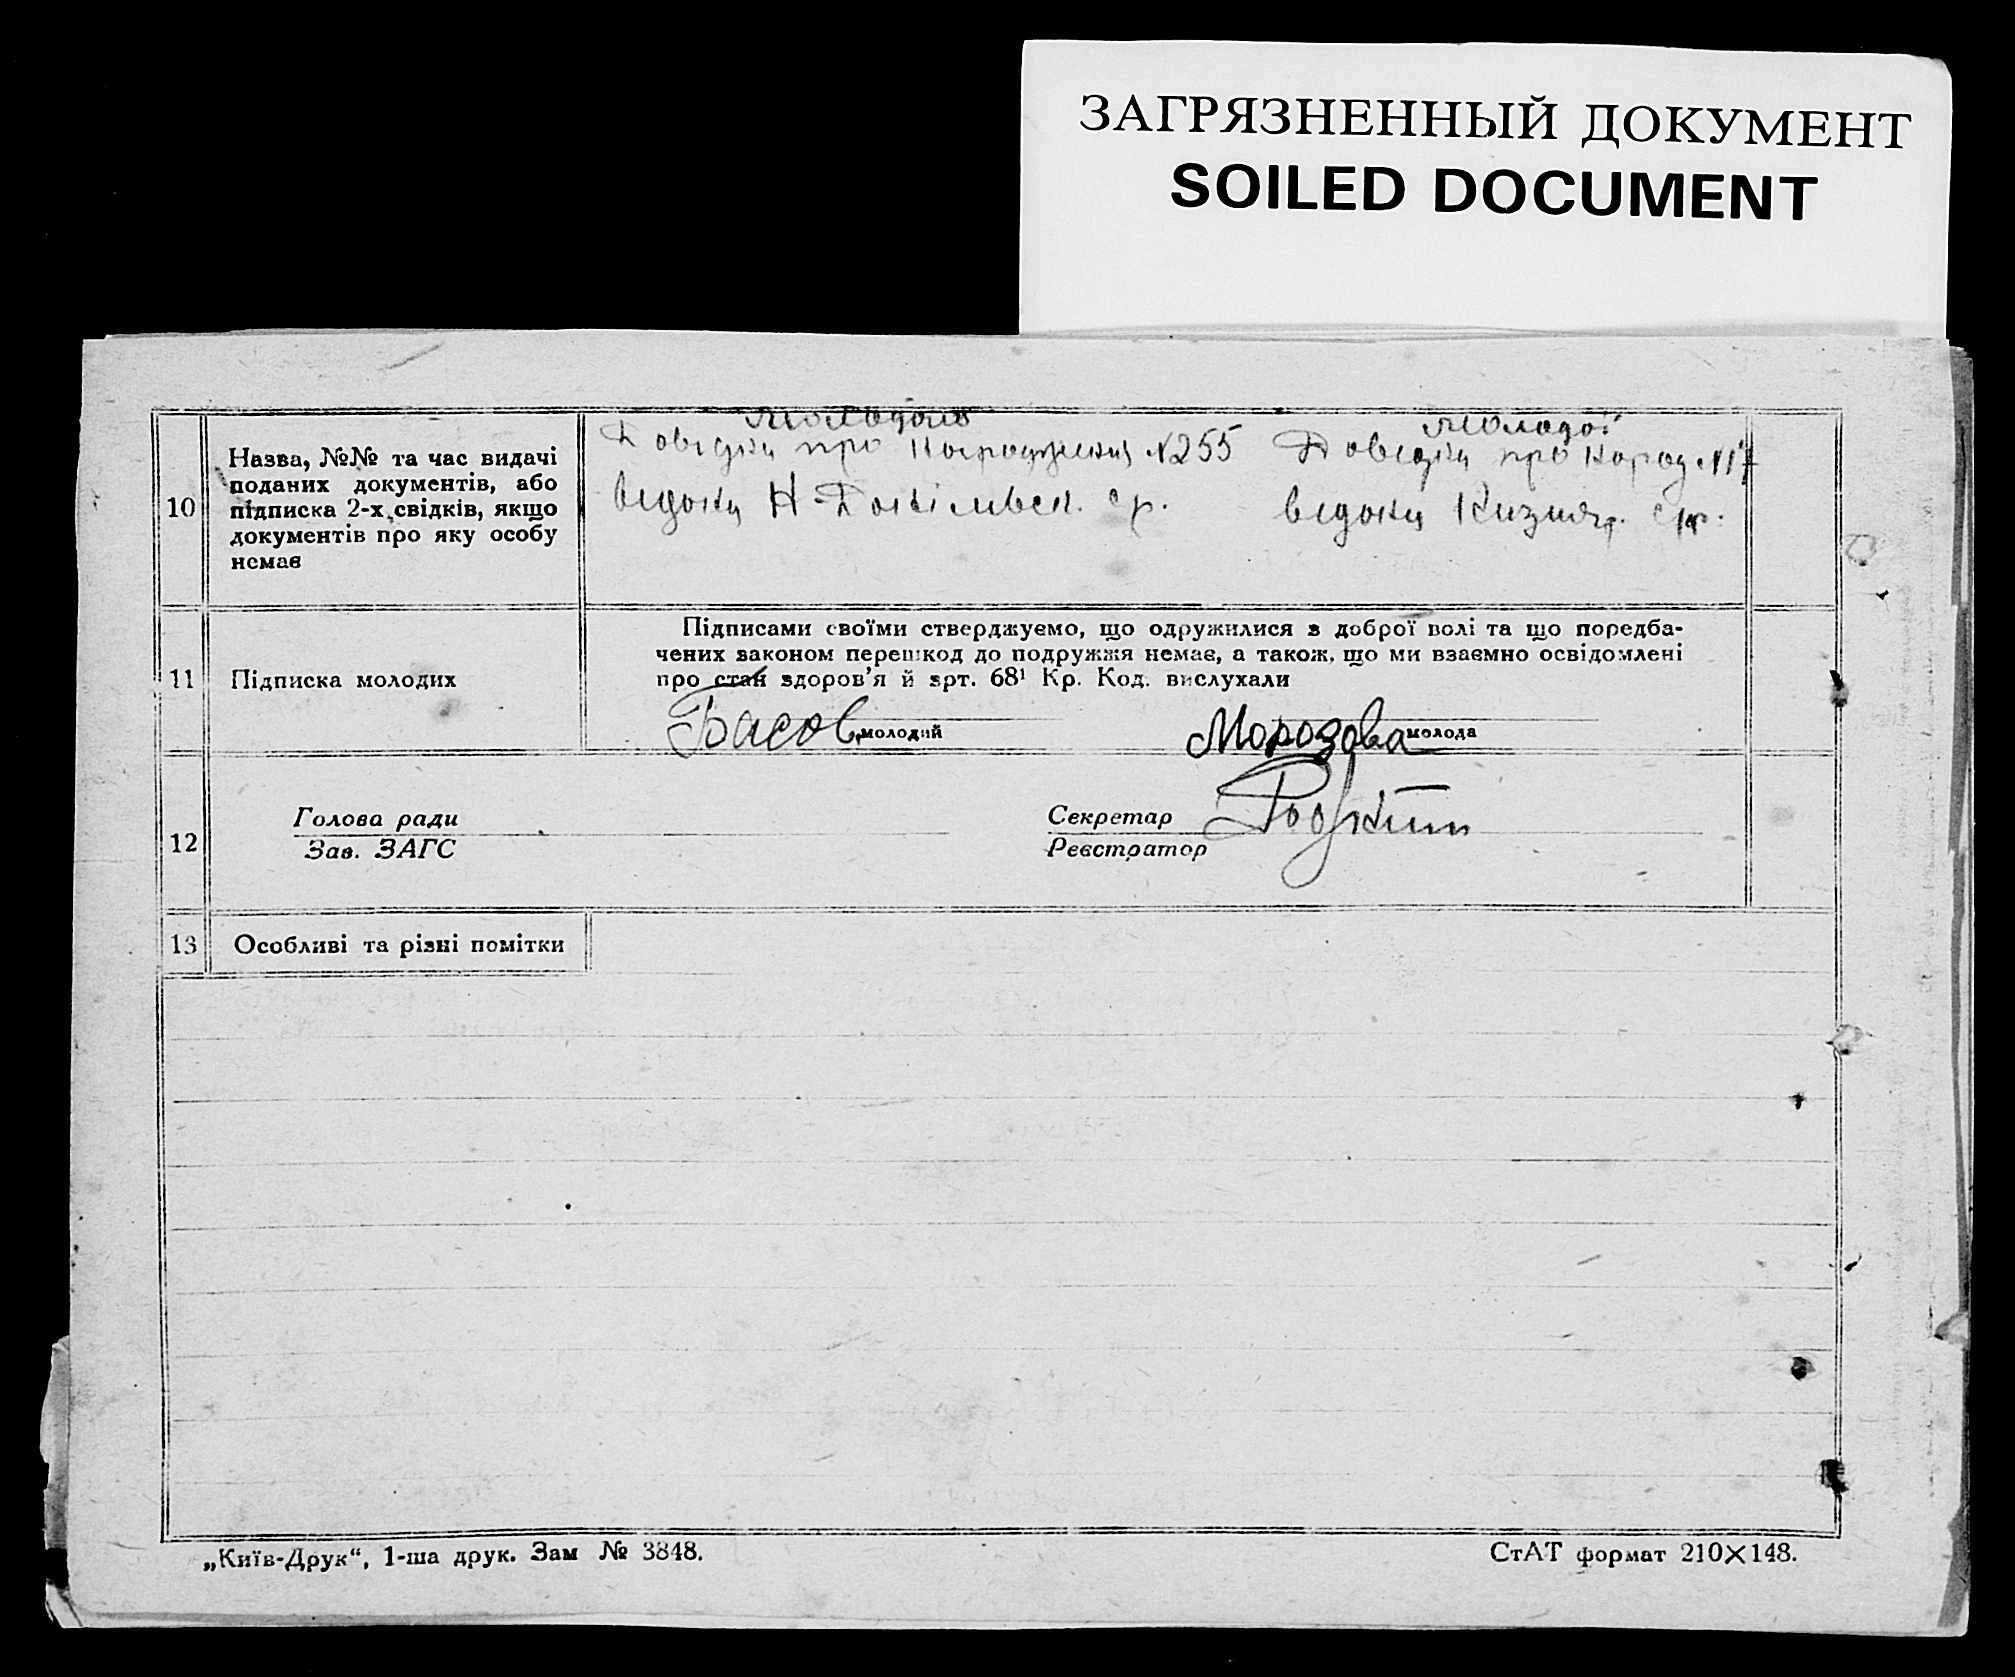 ЗАГРЯЗНЕННЫЙ ДОКУМЕНТ
SOILED DOCUMENT
10
Назва, №№ та час видачі
поданих документів, або
підписка 2-х свідків, якщо
документів про яку особу
немає
Молодого
Довідка про народження №255
видана
Молодої
Довідка про народ №17
видана
11
Підписка молодих
Підписами своїми стверджуємо, що одружилися з доброї волі та що поредба-
чених законом перешкод до подружжя немає, а також, що ми взаємно освідомлені
про стан здоров'я й зрт. 68¹ Кр. Код. вислухали
Басов молодий
Морозова молода
12
Голова ради
Зав. ЗАГС
Секретар
Реєстратор
13
Особливі та різні помітки
„Київ-Друк“, 1-ша друк. Зам № 3848.
СтАТ формат 210×148.